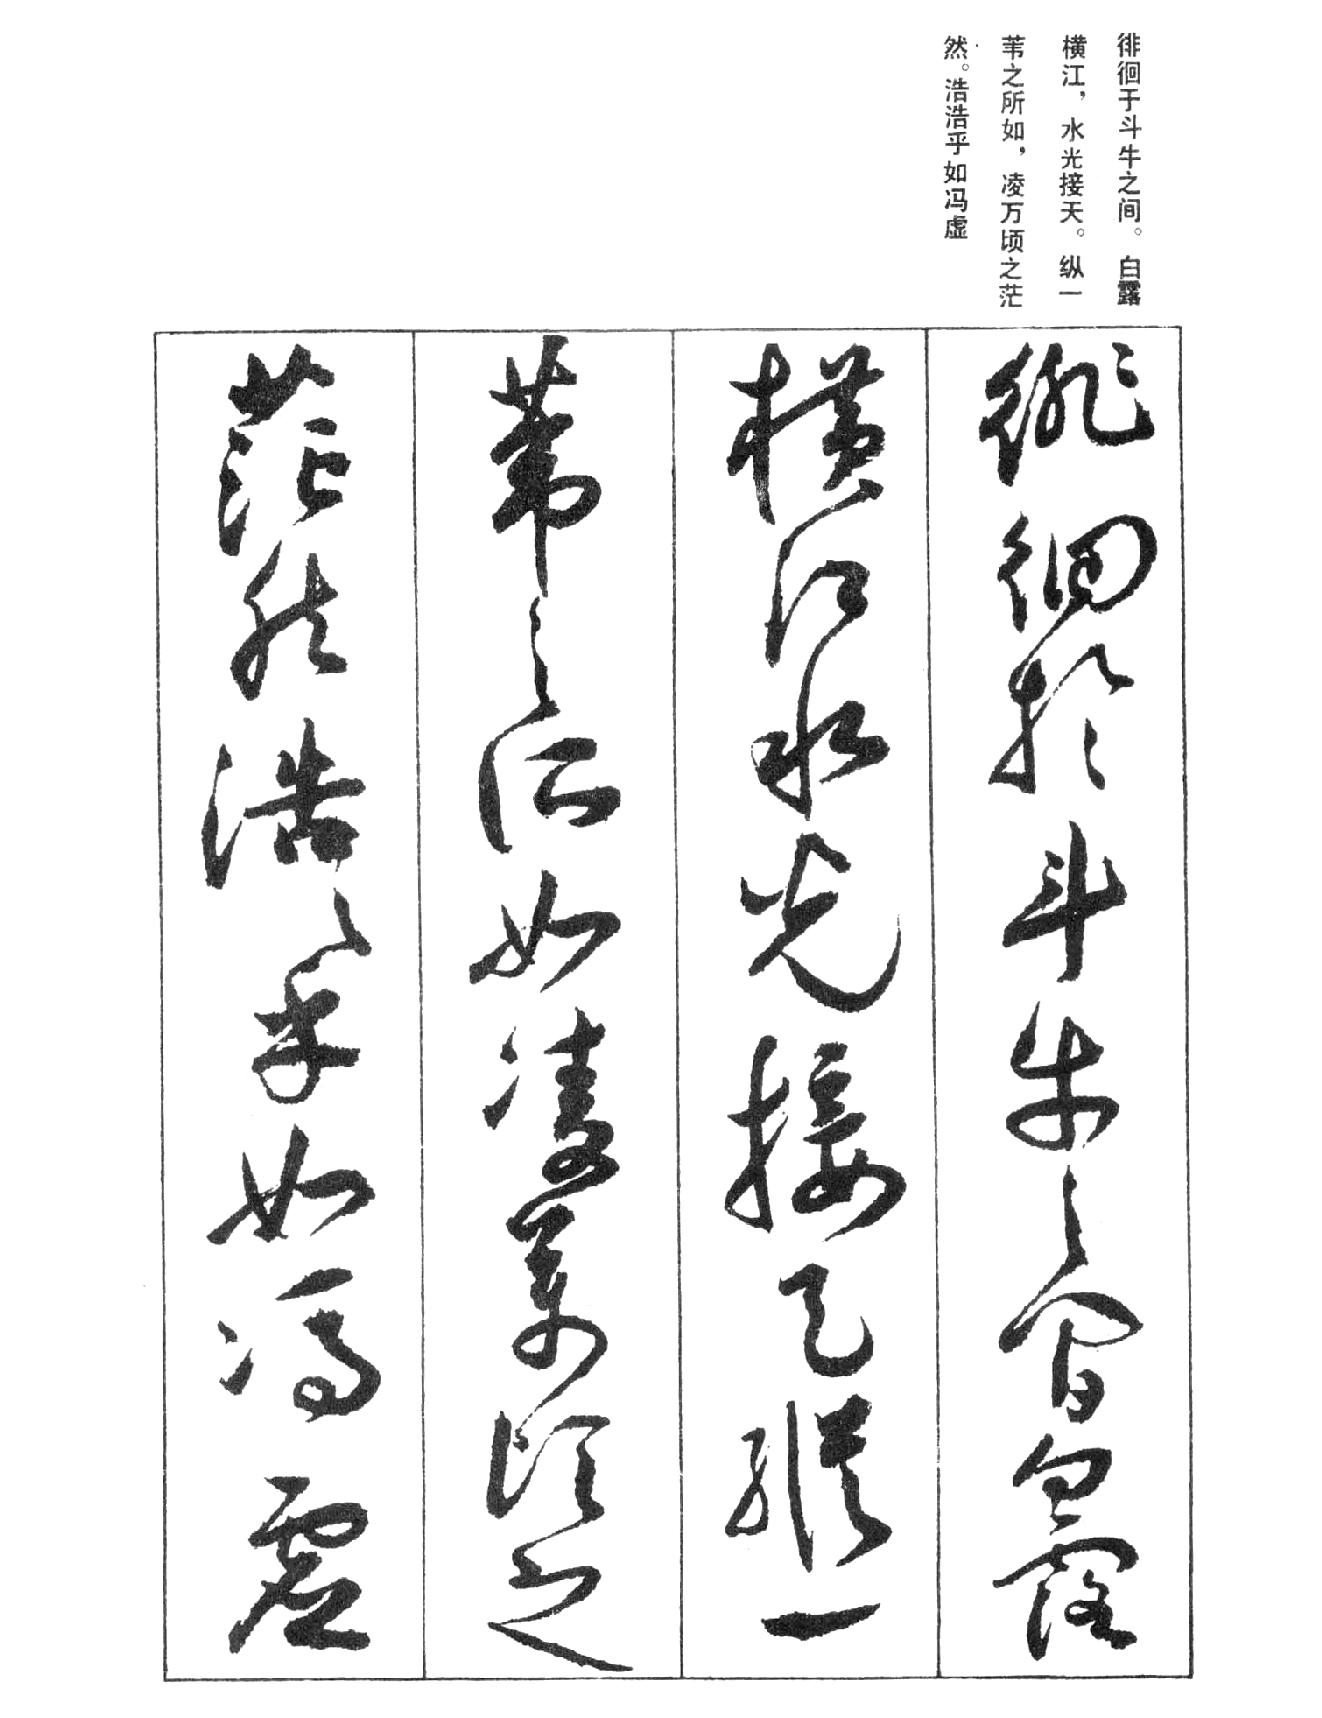 徘徊于斗牛之间。白露
横江，水光接天。纵一
苇之所如，凌万顷之茫
然。浩浩乎如冯虚
徘徊於斗牛之間白露
横江水光接天縱一
葦之所如凌萬頃之
茫然浩〻乎如馮虚